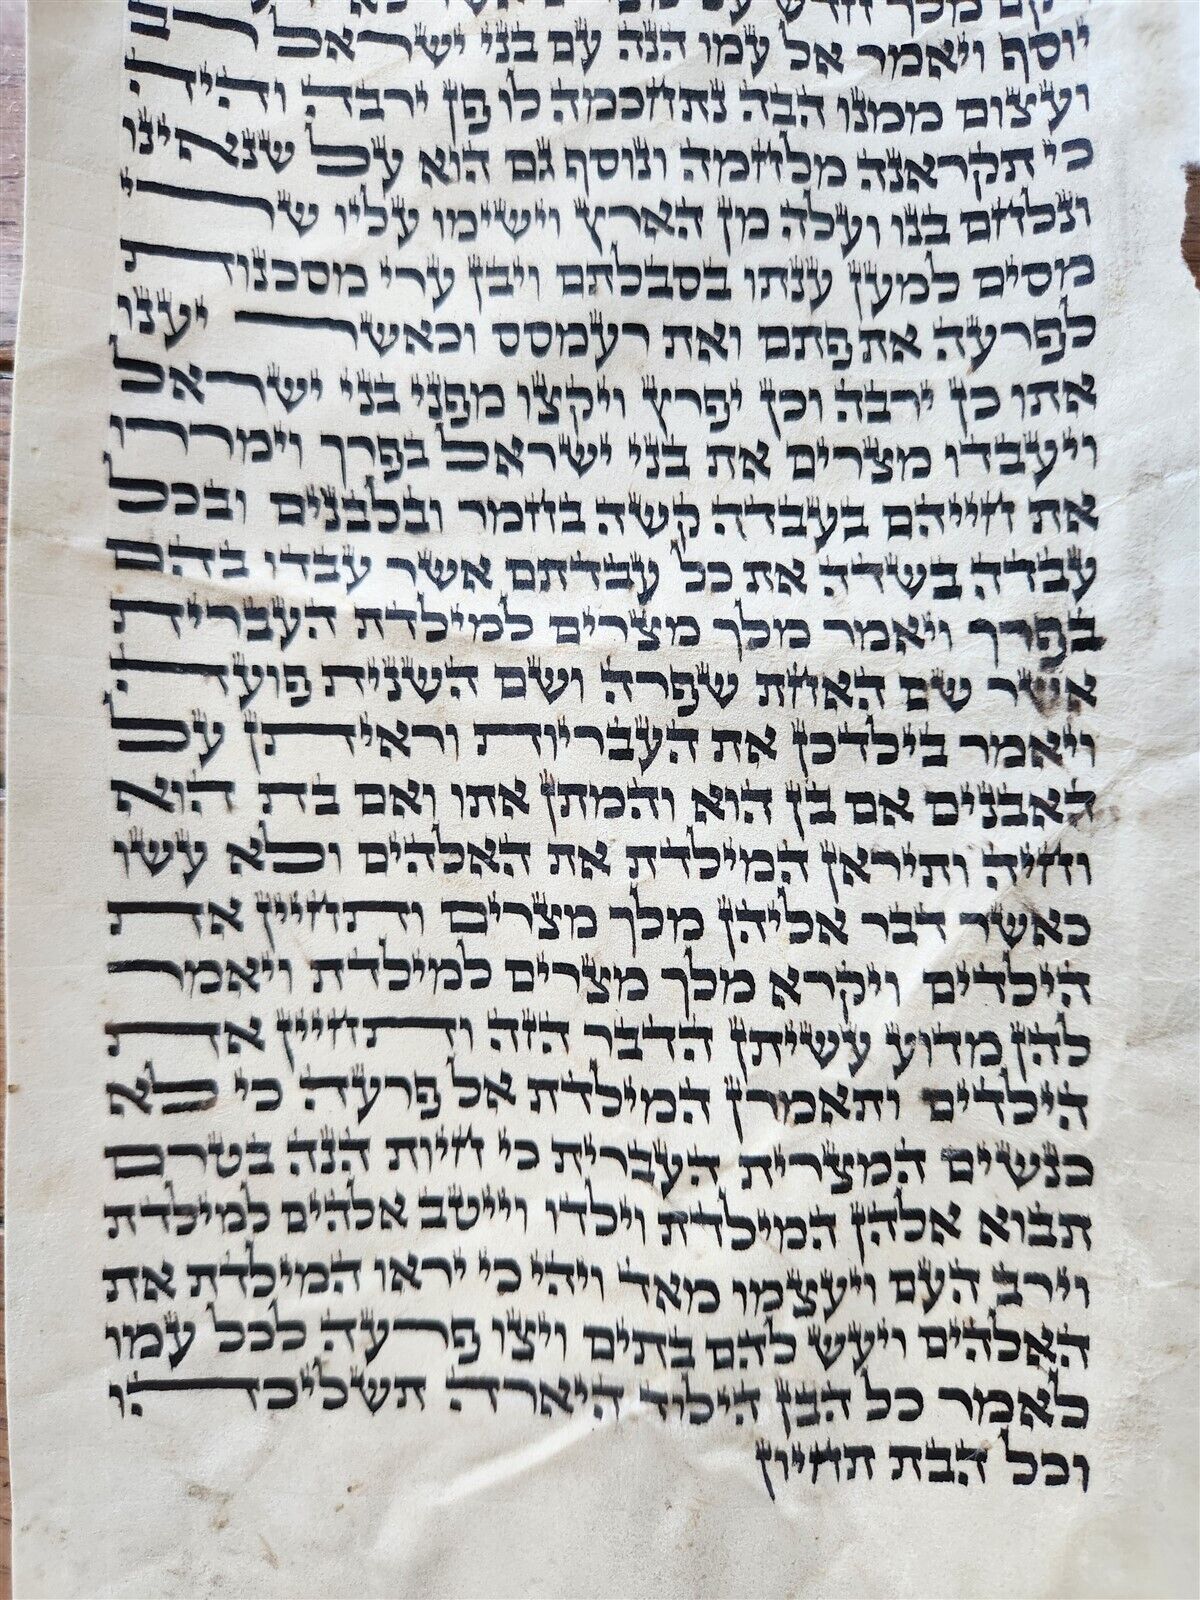 יקם מלך חדש על מצרים אשר לא ידע
יוסף ויאמר אל עמו הנה עם בני ישראל רב
ועצום ממנו הבה נתחכמה לו פן ירבה והיה
כי תקראנה מלחמה ונוסף גם הוא על שנאינו
ונלחם בנו ועלה מן הארץ וישימו עליו שרי
מסים למען ענתו בסבלתם ויבן ערי מסכנות
לפרעה את פתם ואת רעמסס וכאשר יענו
אתו כן ירבה וכן יפרץ ויקצו מפני בני ישראל
ויעבדו מצרים את בני ישראל בפרך וימררו
את חייהם בעבדה קשה בחמר ובלבנים ובכל
עבדה בשדה את כל עבדתם אשר עבדו בהם
בפרך ויאמר מלך מצרים למילדת העברית
אשר שם האחת שפרה ושם השנית פועה
ויאמר בילדכן את העבריות וראיתן על
האבנים אם בן הוא והמתן אתו ואם בת הוא
וחיה ותיראן המילדת את האלהים ולא עשו
כאשר דבר אליהן מלך מצרים ותחיין את
הילדים ויקרא מלך מצרים למילדת ויאמר
להן מדוע עשיתן הדבר הזה ותחיין את
הילדים ותאמרן המילדת אל פרעה כי לא
כנשים המצרית העברית כי חיות הנה בטרם
תבוא אלהן המילדת וילדו וייטב אלהים למילדת
וירב העם ויעצמו מאד ויהי כי יראו המילדת את
האלהים ויעש להם בתים ויצו פרעה לכל עמו
לאמר כל הבן הילוד היארה תשליכהו
וכל הבת תחיון